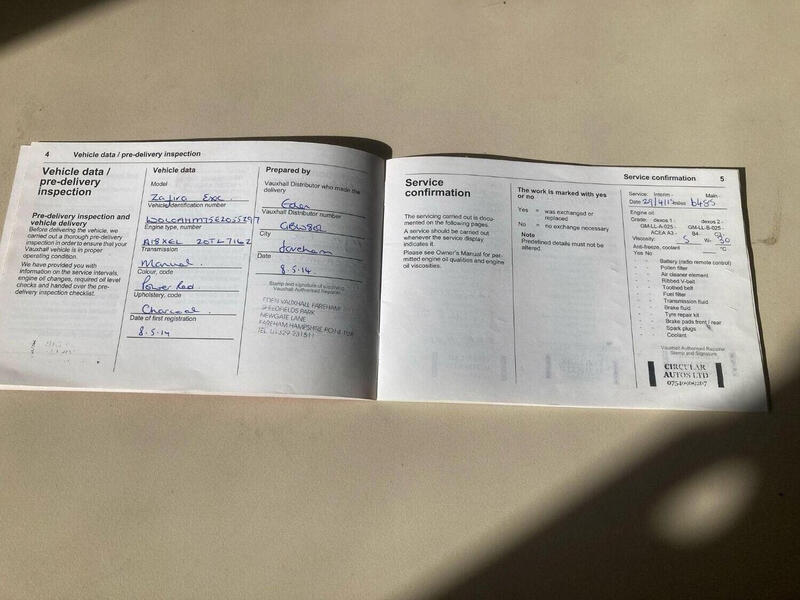 4 Vehicle data / pre-delivery inspection
Vehicle data /
pre-delivery
inspection
Pre-delivery inspection and
vehicle delivery
Before delivering the vehicle, we
carried out a thorough pre-delivery
inspection in order to ensure that your
Vauxhall vehicle is in proper
operating condition.
We have provided you with
information on the service intervals,
engine oil changes, required oil level
checks and handed over the pre-
delivery inspection checklist.
Vehicle data
Model
Zafira Exc
Vehicle Identification number
Engine type, number
A18XEL 20TL7162
Transmission
Manual.
Colour, code
Power Red
Upholstery, code
Charcoal
Date of first registration
8.5.14
Prepared by
Vauxhall Distributor who made the
delivery
Eden
Vauxhall Distributor number
City
Fareham
Date
8.5.14
Stamp and signature of supplying
Vauxhall Authorised Repairer
EDEN VAUXHALL FAREHAM
SPEEDFIELDS PARK
NEWGATE LANE
FAREHAM HAMPSHIRE PO14 1TR
TEL 01329 231511
Service confirmation 5
Service
confirmation
The servicing carried out is docu-
mented on the following pages.
A service should be carried out
whenever the service display
indicates it.
Please see Owner's Manual for per-
mitted engine oil qualities and engine
oil viscosities.
The work is marked with yes
or no
Yes = was exchanged or
replaced
No = no exchange necessary
Note
Predefined details must not be
altered.
Service: Interim - Main -
Date 29/4/15 Miles 6485
Engine oil
Grade: dexos 1 - dexos 2 -
GM-LL-A-025 - GM-LL-B-025 -
ACEA A3 - B4 - C3 -
Viscosity: 5 W- 30
Anti-freeze, coolant °C
Yes No
- - Battery (radio remote control)
- - Pollen filter
- - Air cleaner element
- - Ribbed V-belt
- - Toothed belt
- - Fuel filter
- - Transmission fluid
- - Brake fluid
- - Tyre repair kit
- - Brake pads front / rear
- - Spark plugs
- - Coolant
Vauxhall Authorised Repairer
Stamp and Signature
CIRCULAR
AUTOS LTD